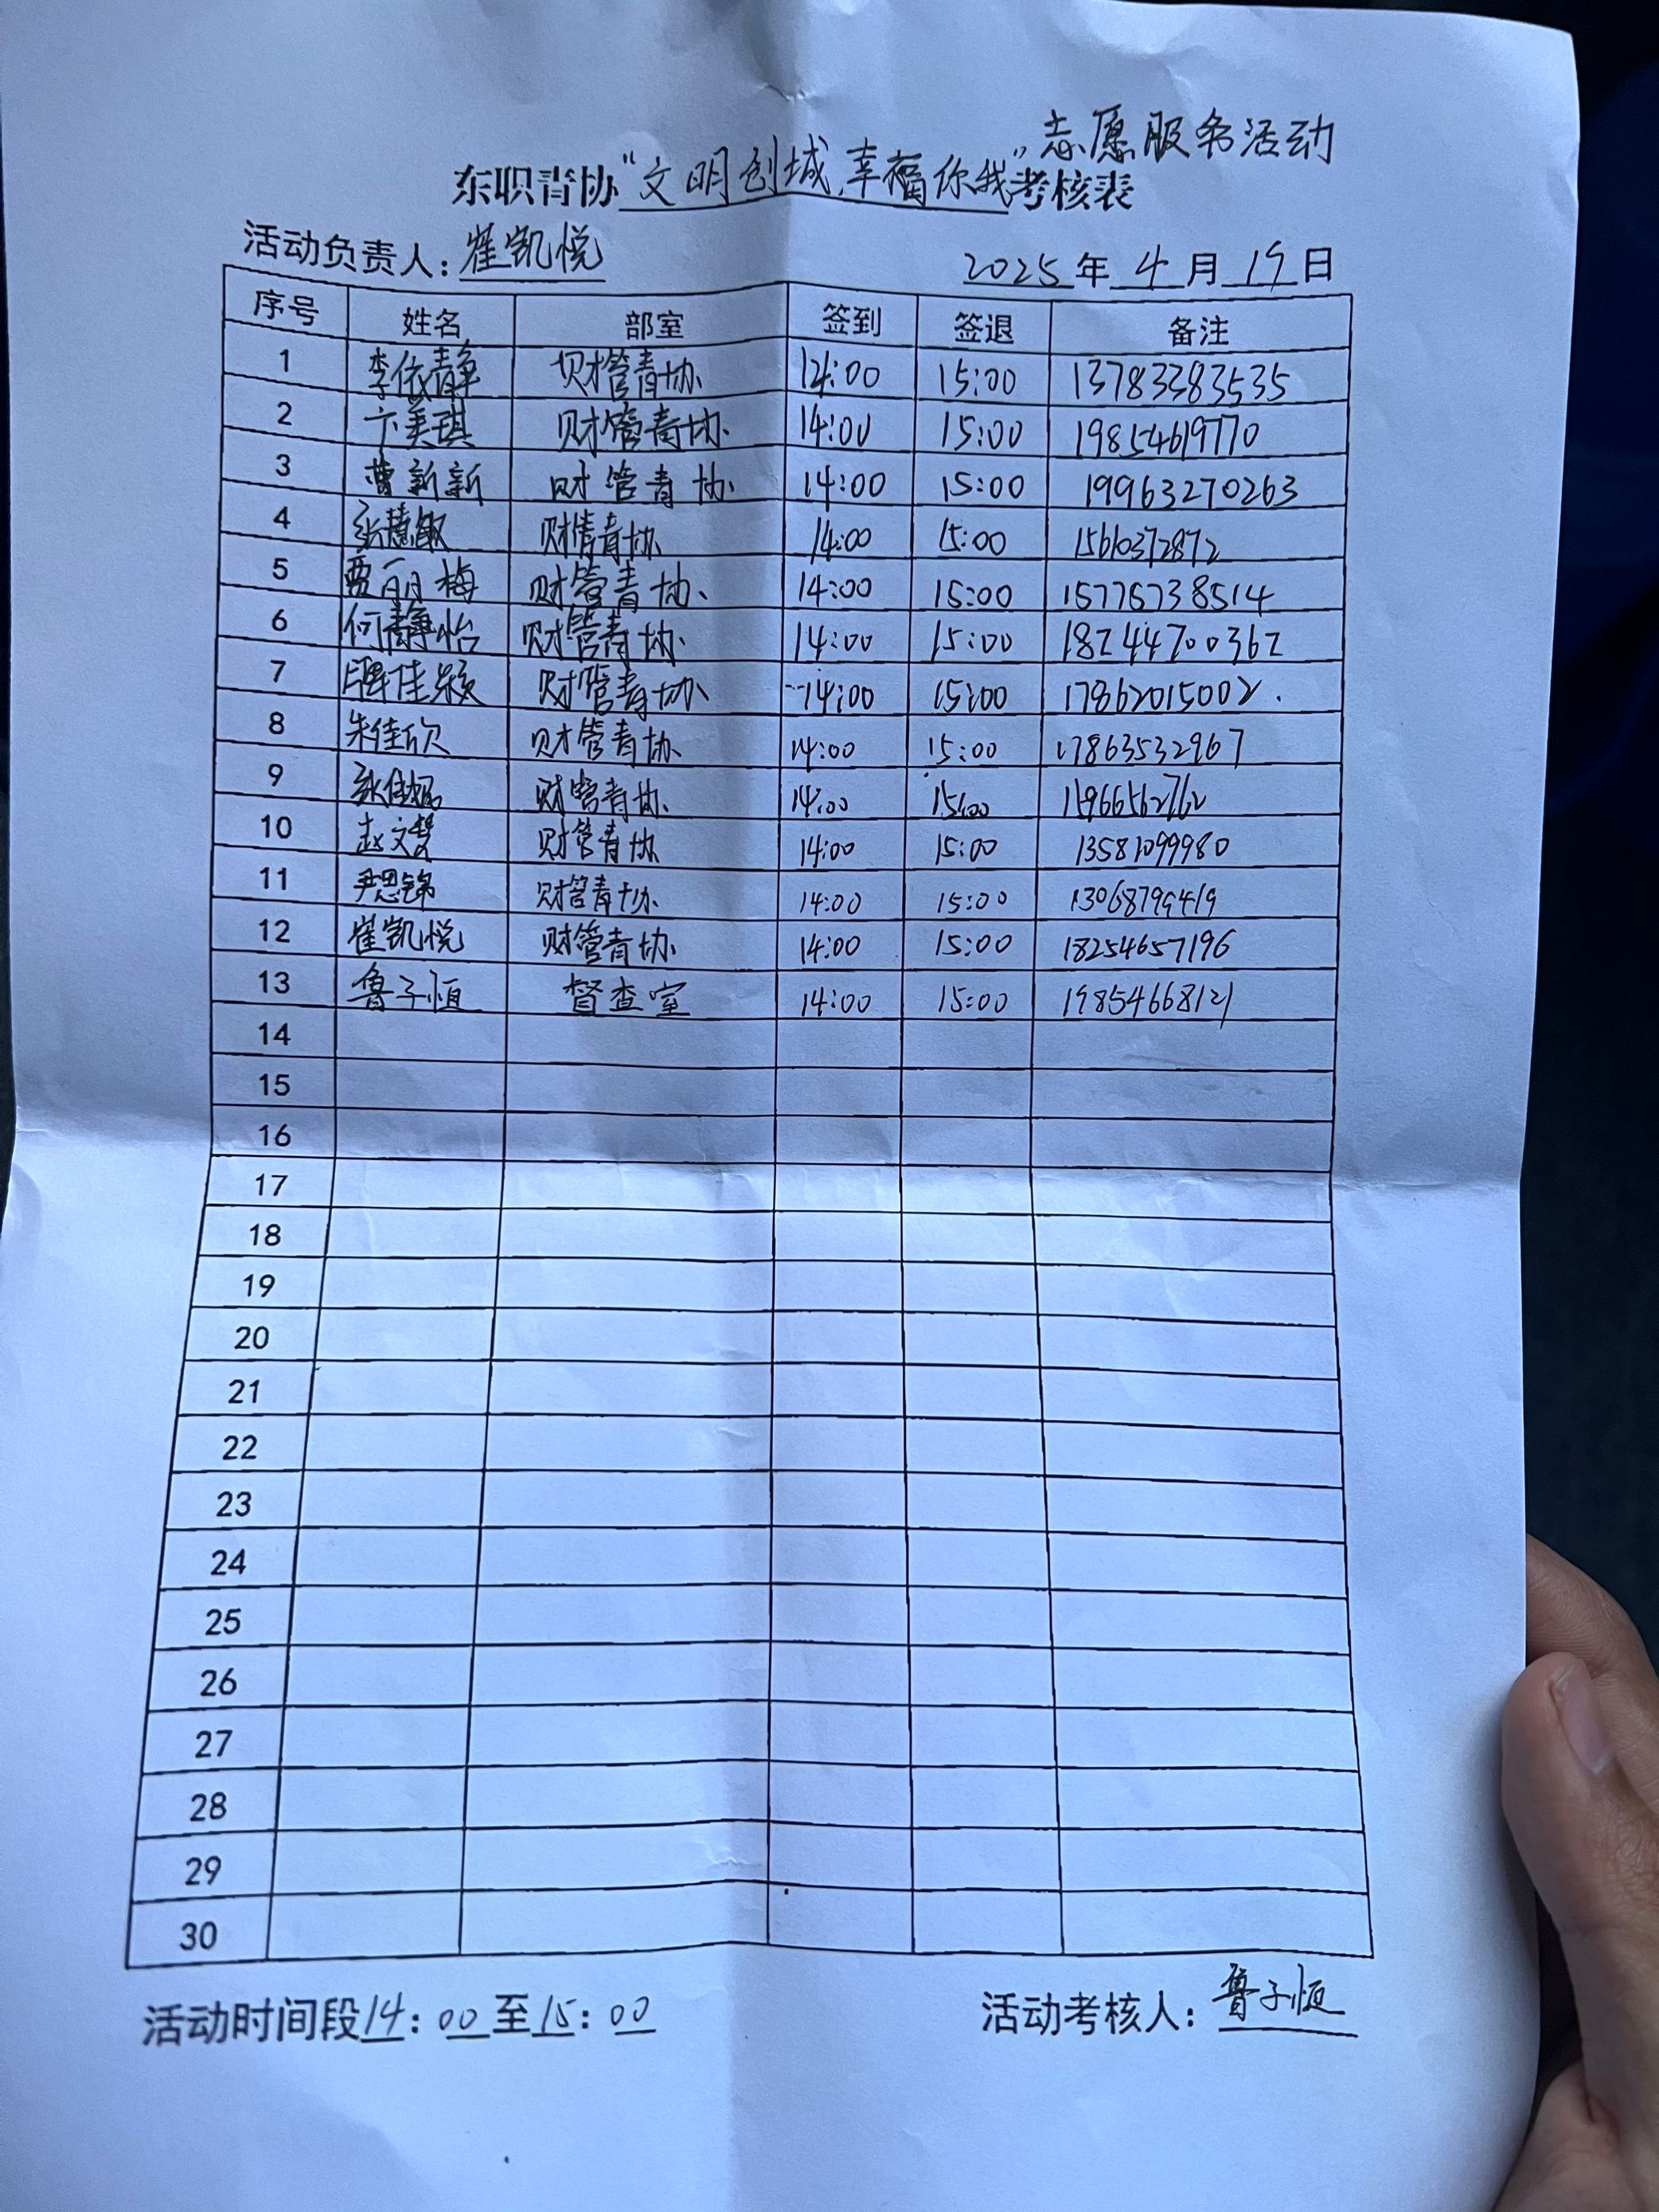 志愿服务活动
东职青协“文明创城,幸福你我”考核表
活动负责人:崔凯悦 2025年4月19日
序号 姓名 部室 签到 签退 备注
1 李依静 财管青协 14:00 15:00 13783383535
2 卞美琪 财管青协 14:00 15:00 19854619770
3 曹新新 财管青协 14:00 15:00 19963270263
4 张慧敏 财管青协 14:00 15:00 15610372872
5 贾丽梅 财管青协 14:00 15:00 15775738514
6 何静怡 财管青协 14:00 15:00 18244700362
7 佳颖 财管青协 14:00 15:00 17862015002.
8 朱佳欣 财管青协 14:00 15:00 17863532967
9 财管青协 14:00 15:00
10 赵文 财管青协 14:00 15:00 13581099980
11 尹思锦 财管青协 14:00 15:00
12 崔凯悦 财管青协 14:00 15:00 18254657196
13 鲁子恒 督查室 14:00 15:00 19854668121
14
15
16
17
18
19
20
21
22
23
24
25
26
27
28
29
30
活动时间段14:00至15:00 活动考核人:鲁子恒